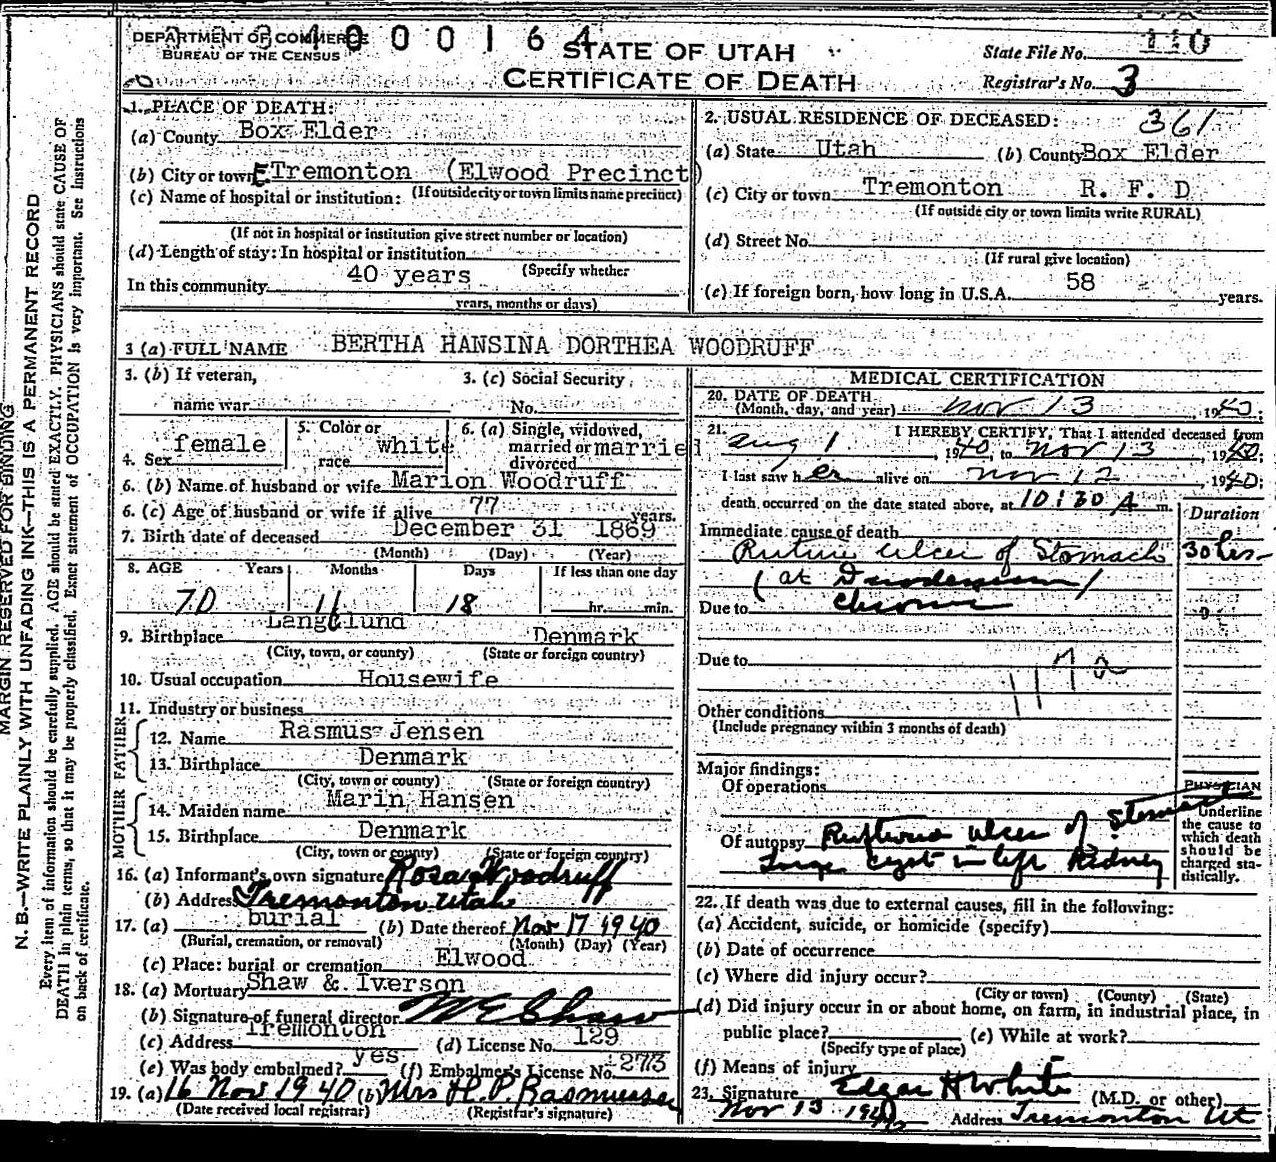 DEPARTMENT OF COMMERCE
BUREAU OF THE CENSUS
34000164
STATE OF UTAH
CERTIFICATE OF DEATH
State File No. 110
Registrar's No. 3
MARGIN RESERVED FOR BINDING
N. B.—WRITE PLAINLY WITH UNFADING INK—THIS IS A PERMANENT RECORD
Every item of information should be carefully supplied. AGE should be stated EXACTLY. PHYSICIANS should state CAUSE OF
DEATH in plain terms, so that it may be properly classified. Exact statement of OCCUPATION is very important. See Instructions
on back of certificate.
1. PLACE OF DEATH:
(a) County Box Elder
(b) City or town Tremonton (Elwood Precinct)
(If outside city or town limits name precinct)
(c) Name of hospital or institution:
(If not in hospital or institution give street number or location)
(d) Length of stay: In hospital or institution
(Specify whether
In this community 40 years
years, months or days)
2. USUAL RESIDENCE OF DECEASED: 361
(a) State Utah (b) County Box Elder
(c) City or town Tremonton R. F. D
(If outside city or town limits write RURAL)
(d) Street No.
(If rural give location)
(e) If foreign born, how long in U.S.A. 58 years.
3 (a) FULL NAME BERTHA HANSINA DORTHEA WOODRUFF
3. (b) If veteran,
name war
3. (c) Social Security
No.
4. Sex female
5. Color or
race white
6. (a) Single, widowed,
married or married
divorced
6. (b) Name of husband or wife Marion Woodruff
6. (c) Age of husband or wife if alive 77 years.
7. Birth date of deceased December 31 1869
(Month) (Day) (Year)
8. AGE Years Months Days If less than one day
70 11 18 hr. min.
9. Birthplace Denmark
(City, town, or county) (State or foreign country)
10. Usual occupation Housewife
11. Industry or business
FATHER
12. Name Rasmus Jensen
13. Birthplace Denmark
(City, town or county) (State or foreign country)
MOTHER
14. Maiden name Marin Hansen
15. Birthplace Denmark
(City, town or county) (State or foreign country)
16. (a) Informant's own signature Rosa Woodruff
(b) Address Tremonton Utah
17. (a) burial (b) Date thereof Nov 17 1940
(Burial, cremation, or removal) (Month) (Day) (Year)
(c) Place: burial or cremation Elwood
18. (a) Mortuary Shaw & Iverson
(b) Signature of funeral director M E Shaw
(c) Address Tremonton (d) License No. 129
(e) Was body embalmed? yes (f) Embalmer's License No. 273
19. (a) 16 Nov 1940 (b) Mrs H. P. Rasmussen
(Date received local registrar) (Registrar's signature)
MEDICAL CERTIFICATION
20. DATE OF DEATH
(Month, day, and year) Nov 13, 1940;
21. I HEREBY CERTIFY, That I attended deceased from
Aug 1, 1940, to Nov 13, 1940;
I last saw her alive on Nov 12, 1940;
death occurred on the date stated above, at 10:30 A m.
Duration
Immediate cause of death
Ulcer of Stomach 30 hrs
(at Duodenum)
Due to Chronic
Due to
117a
Other conditions
(Include pregnancy within 3 months of death)
Major findings:
Of operations
Of autopsy Ruptured ulcer of Stomach
Large cyst in left Kidney
PHYSICIAN
Underline
the cause to
which death
should be
charged sta-
tistically.
22. If death was due to external causes, fill in the following:
(a) Accident, suicide, or homicide (specify)
(b) Date of occurrence
(c) Where did injury occur?
(City or town) (County) (State)
(d) Did injury occur in or about home, on farm, in industrial place, in
public place? (e) While at work?
(Specify type of place)
(f) Means of injury
23. Signature Edgar H White (M.D. or other)
Nov 13 1940 Address Tremonton Ut